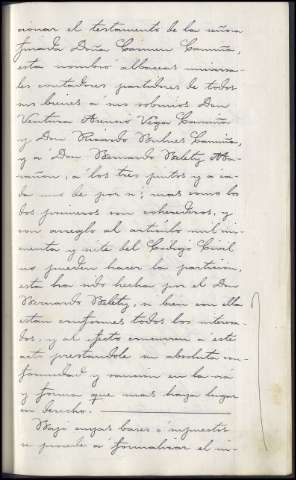 cionar el testamento de la señora
finada Doña Carmen Camiña,
esta nombró albaceas universa-
les contadores partidores de todos
sus bienes á sus sobrinos Don
Ventura Asensio Vega Camiña
y Don Ricardo Bulnes Camiña,
y á Don Bernardo Melety
á los tres juntos y á ca-
da uno de por sí; mas como los
dos primeros son coherederos, y
con arreglo al artículo mil cin-
cuenta y siete del Codigo Civil
no pueden hacer la partición,
esta ha sido hecha por el Don
Bernardo Melety, si bien con ella
estan conformes todos los interesa-
dos, y al efecto concurren á este
acto prestandole su absoluta con-
formidad y sanción en la vía
y forma que mas haya lugar
en derecho.
Bajo cuyas bases ó supuestos
se procede á formalizar el in-